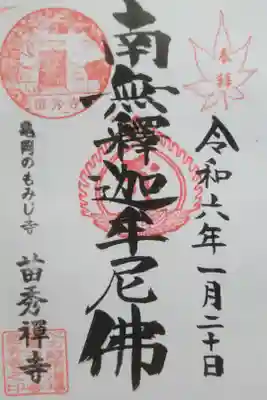 奉拝
令和六年一月二十日
南無釋迦牟尼佛
亀岡のもみじ寺
苗秀禅寺
苗秀寺